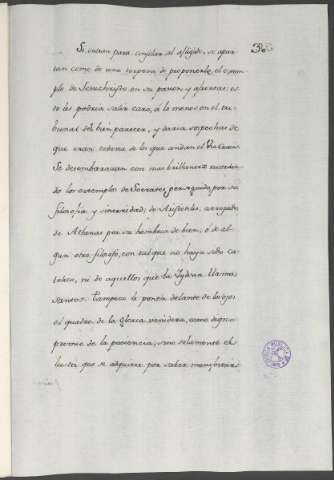 Si entran para consolar al afligido, se apar-
tan como de una torpeza de proponerle el exem-
plo de Jesuchristo en su pasion y afrentas: es-
to les podria salir caro, á lo menos en el tri-
bunal del bien parecer, y daria sospechas de
que eran catervas de los que
Se desembarazan con mas brillantez
do los exemplos de Socrates, perseguido por su
filosofia y sinceridad; de Aristides, arrojado
de Athenas por su hombria de bien; ó de al-
gun otro filosofo, con tal que no haya sido ca-
tolico, ni de aquellos que la Iglesia llama
santos. Tampoco le ponen delante de los ojos
el quadro de la gloria venidera, como digno
premio de la paciencia; sino solamente el
lustre que se adquiere por saber